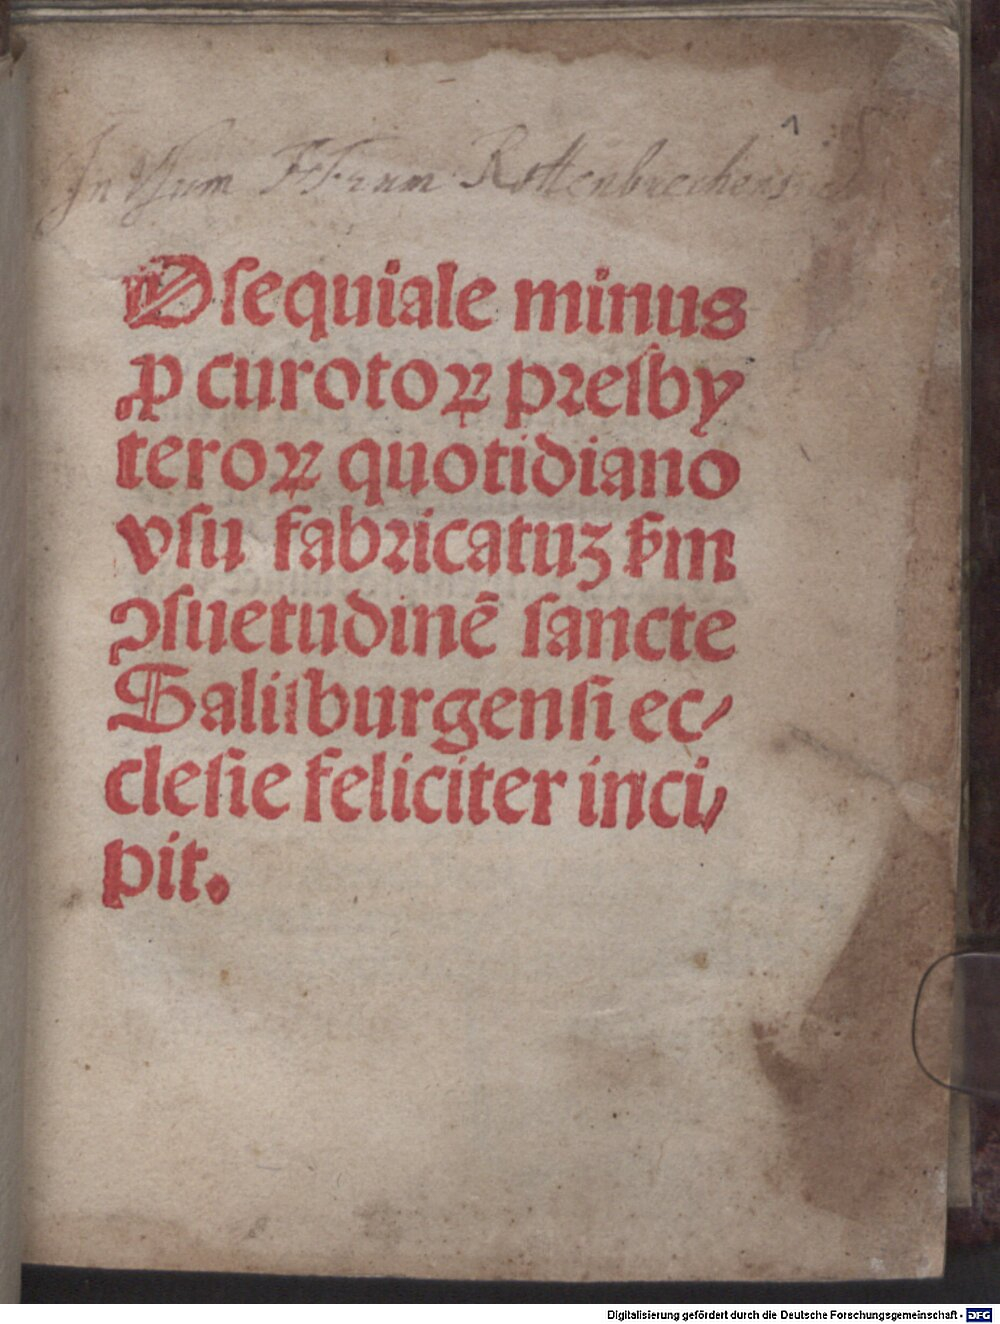 1
In Vsum FF. rum Rottenbuechensium
Obsequiale minus
ꝓ curotoꝝ presby
teroꝝ quotidiano
vſu fabricatuʒ ſm
ꝯſuetudinē ſancte
Saliſburgenſi ec⸗
cleſie feliciter inci⸗
pit.
Digitalisierung gefördert durch die Deutsche Forschungsgemeinschaft - DFG